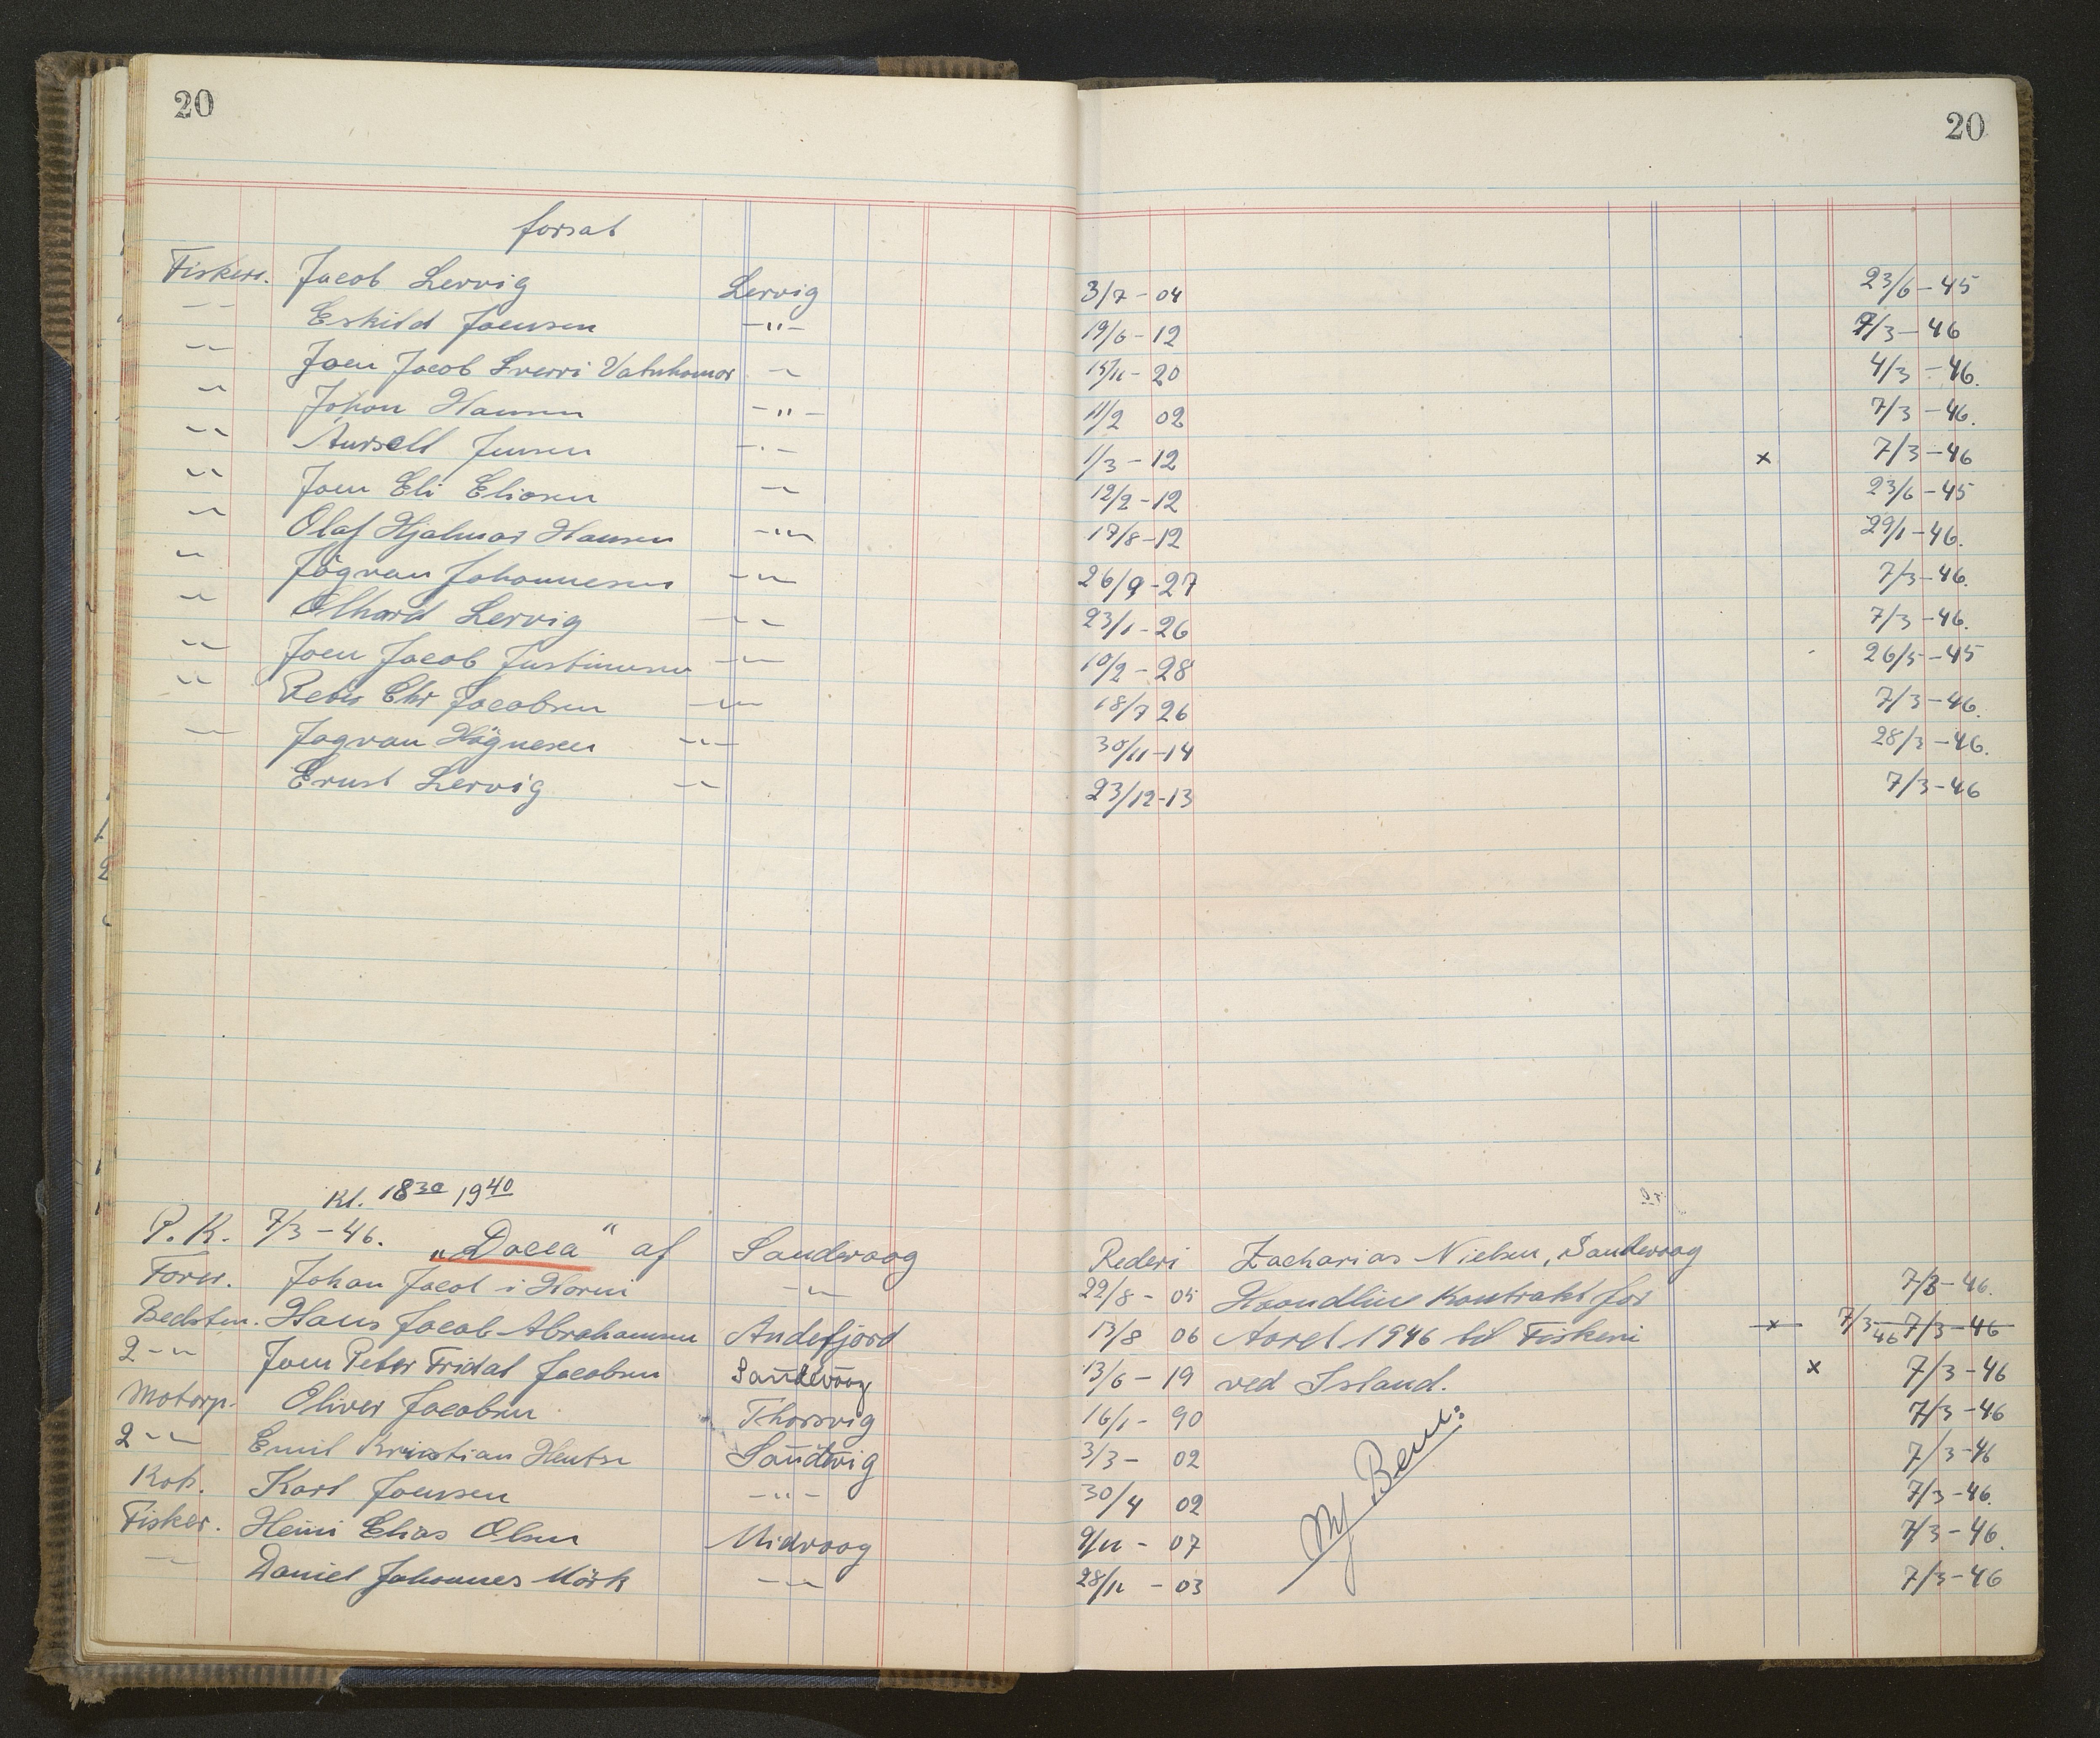 20 20
forsat
Fisker. Jacob Lervig Lervig 3/7 - 04 23/6 - 45
-"- Eskild Joensen -"- 19/6 - 12 7/3 - 46
-"- Joen Jacob Sverri Vatnhamar -"- 15/11 - 20 4/3 - 46.
-"- Johan Hansen -"- 11/2 02 7/3 - 46.
-"- Aursell Jensen -"- 1/3 - 12 x 7/3 - 46
-"- Joen Eli Eliasen -"- 12/2 - 12 23/6 - 45
-"- Olaf Hjalmar Hansen -"- 17/8 - 12 29/1 - 46.
-"- Jógvan Johannesen -"- 26/9 - 27 7/3 - 46.
-"- Olhard Lervig -"- 23/1 - 26 7/3 - 46.
-"- Joen Jacob Justinusen -"- 10/2 - 28 26/5 - 45
-"- Peter Chr Jacobsen -"- 18/7 26 7/3 - 46.
-"- Jogvan Högnesen -"- 30/11 - 14 28/3 - 46.
Ernst Lervig -"- 23/12 - 13 7/3 - 46
Kl. 18 30 19 40
P. K. 7/3 - 46. "Dacia" af Sandevaag Rederi Zacharias Nielsen, Sandevaag
Förer. Johan Jacob i Horni -"- 22/8 - 05 Haandline Kontrakt for 7/3 - 46.
Bedstm. Hans Jacob Abrahamsen Andefjord 13/8 06 Aaret 1946 til Fiskeri x 7/3 46 7/3 - 46
2 -"- Joen Peter Fridal Jacobsen Sandevaag 13/6 - 19 ved Island. x 7/3 - 46
Motorp. Oliver Jacobsen Thorsvig 16/1 - 90 7/3 - 46
2 -"- Emil Kristian Hentze Sandvig 3/3 - 02 7/3 - 46
Kok. Karl Joensen -"- 30/4 02 7/3 - 46.
Fisker. Heini Elias Olsen Midvaag 9/11 - 07 7/3 - 46.
-"- Daniel Johannes Mörk -"- 28/11 - 03 7/3 - 46